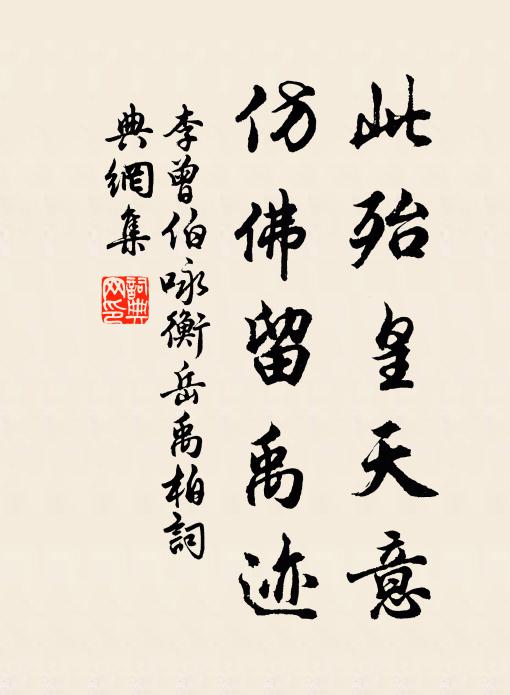 此殆皇天意
仿佛留禹迹
李曾伯咏衡岳禹柏詞
典網集
詞典
网印